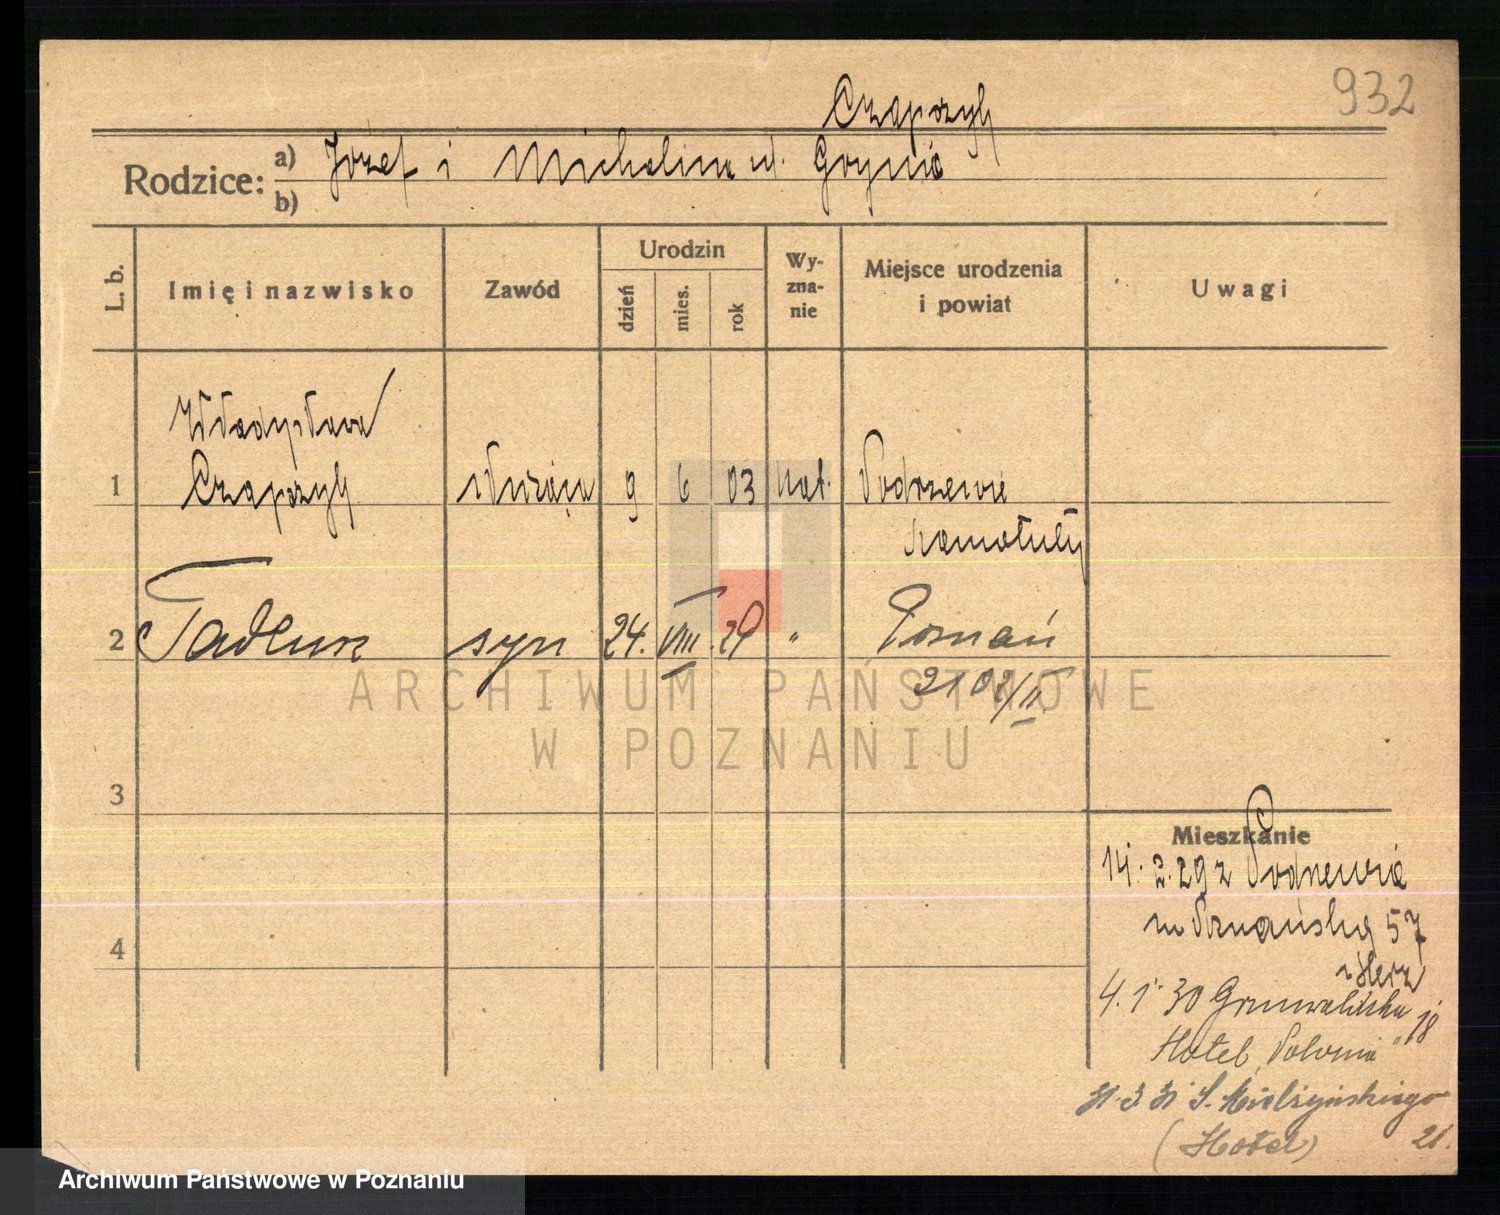 932
Czaprzyk
Rodzice: a) Józef i Michalina ur. Grynia
b)
L. b.
Imię i nazwisko
Zawód
Urodzin
dzień
mies.
rok
Wy-
zna-
nie
Miejsce urodzenia
i powiat
Uwagi
Władysława
1 Czaprzyk służąca 9 6 03 kat. Podrzewie
Szamotuły
2 Tadeusz syn 24. VIII 29 " Poznań
2102/II
3
Mieszkanie
14. 2. 29 z Podrzewie
Poznańska 57
4
4. 1. 30 Grunwaldzka 18
Hotel „Polonia"
31. 3. 31 S. Mielżyńskiego
(Hotel) 21.
ARCHIWUM PAŃSTWOWE
W POZNANIU
Archiwum Państwowe w Poznaniu